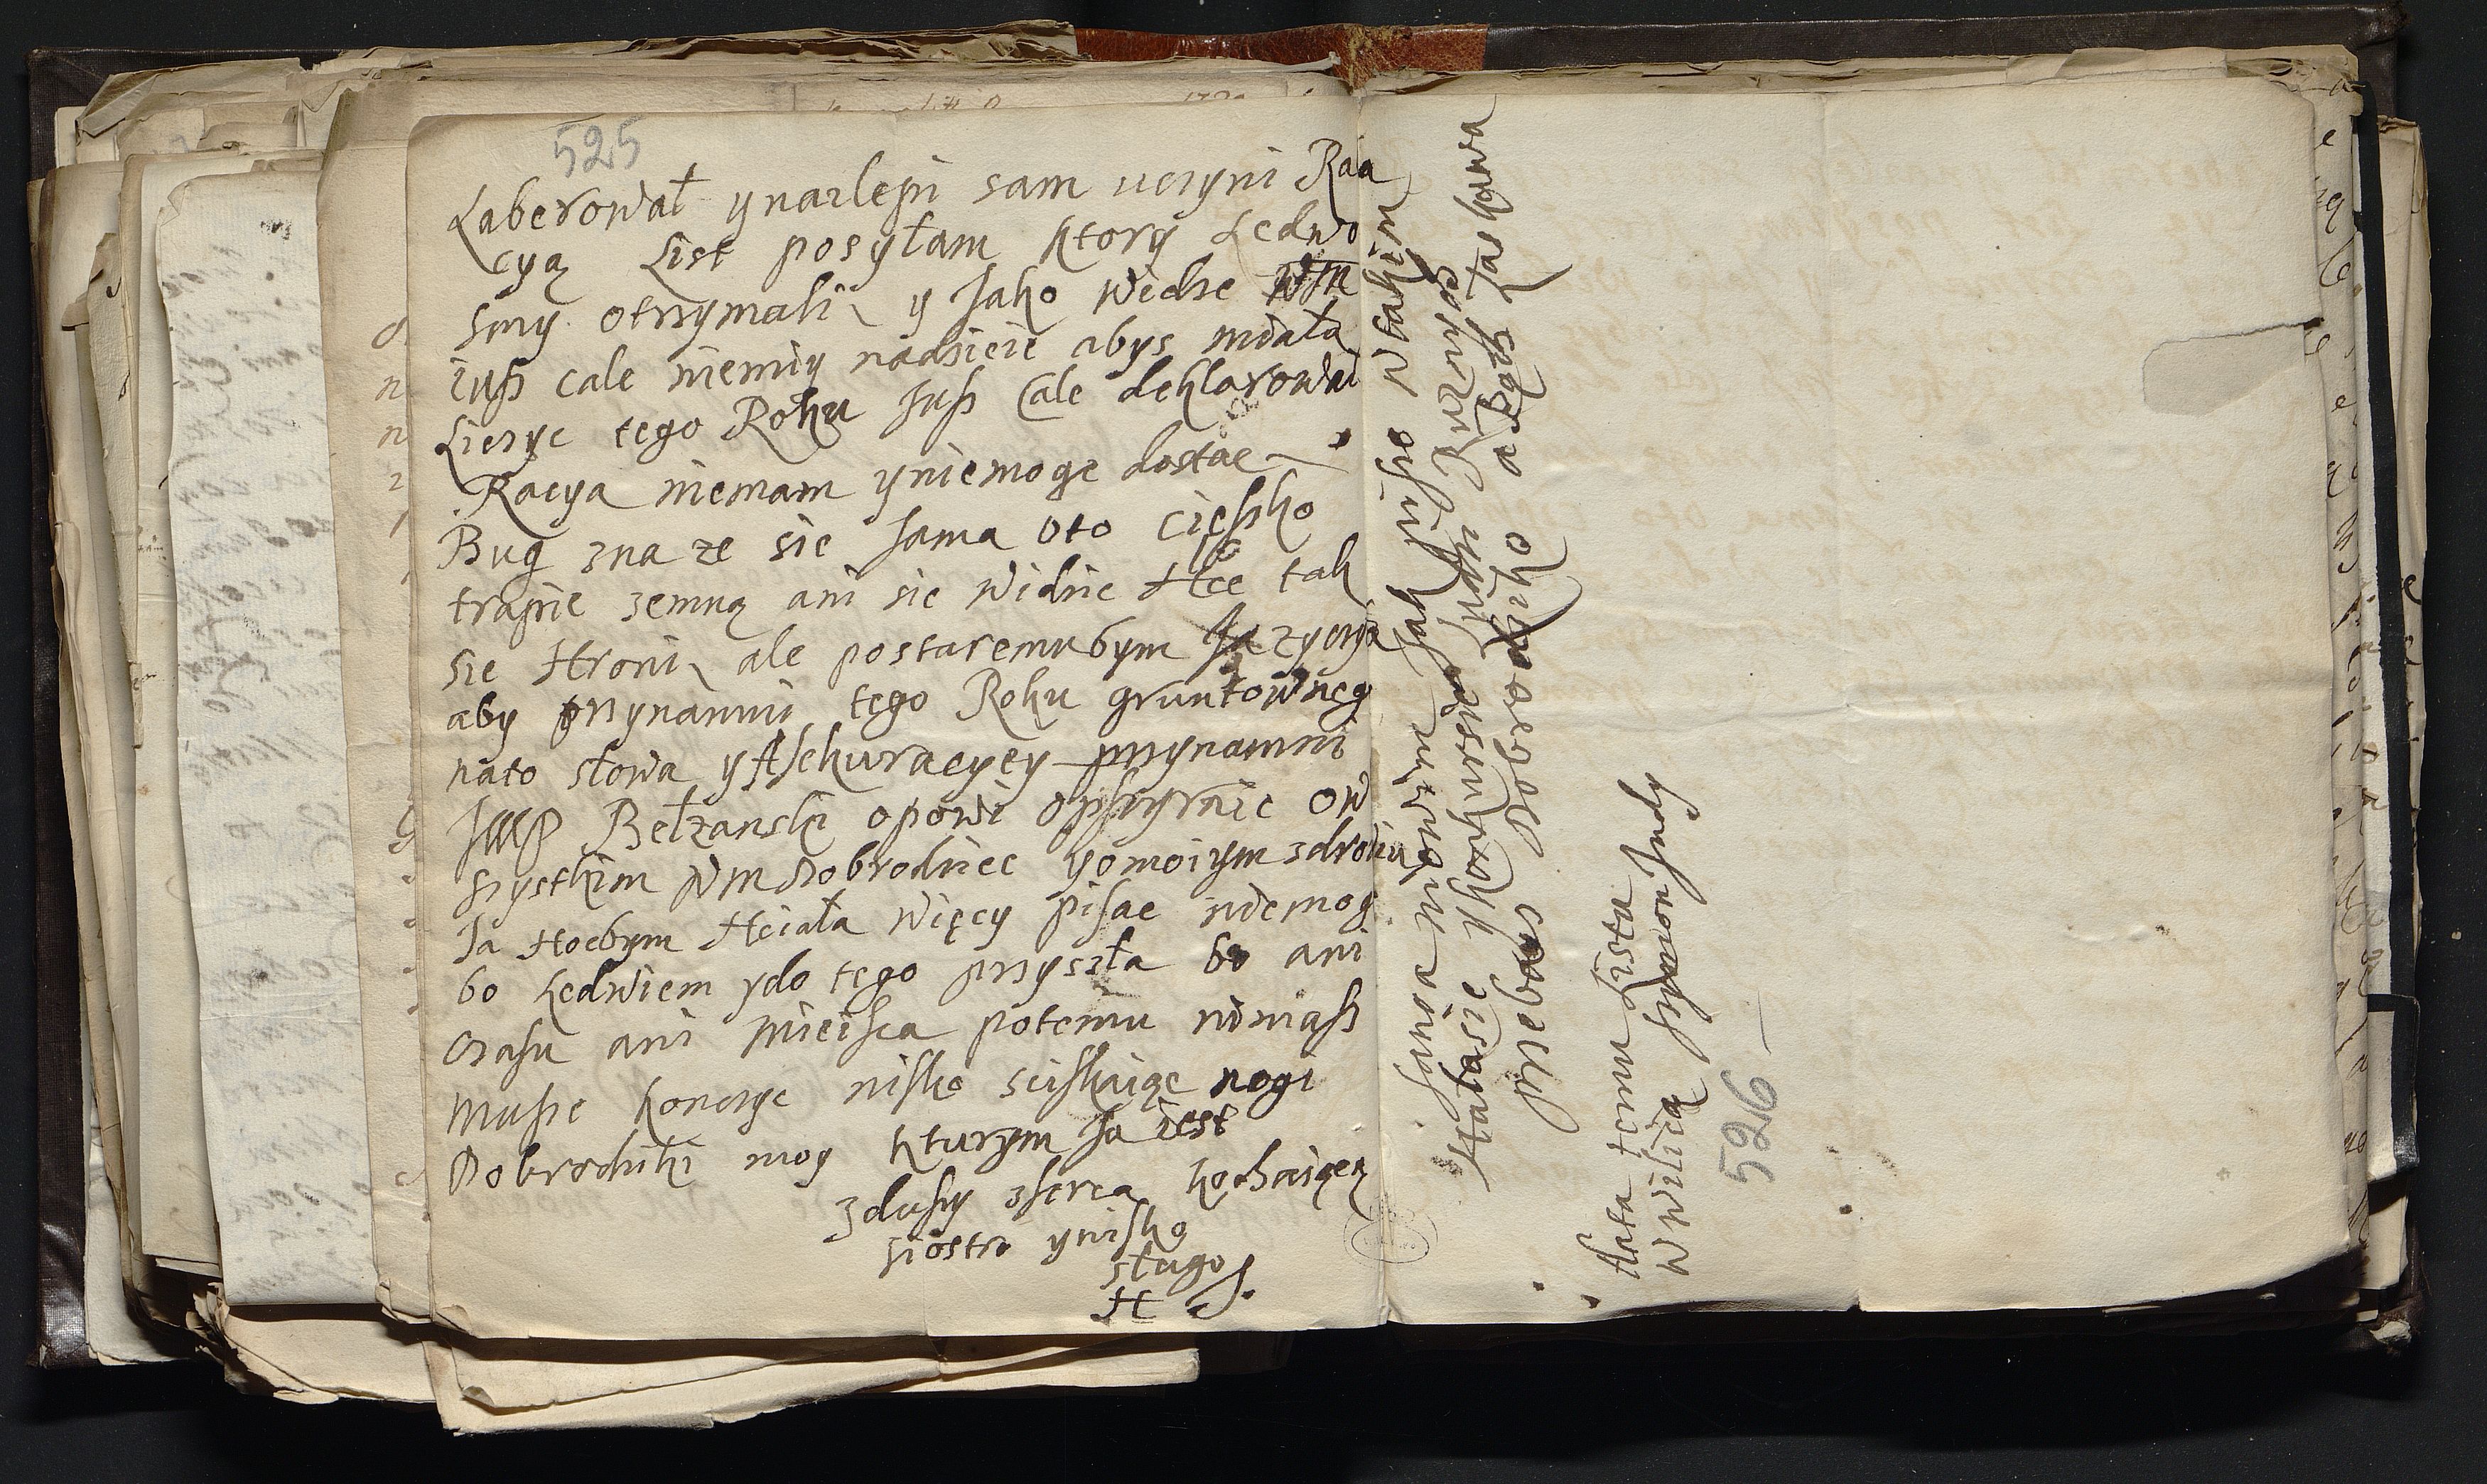 525
Laberował y nazlepi sam uczyni Raa
cyą List posyłam ktory Ledwo
smy otrzymali y Jako Widze WM
iuß cale niemiy nadzieie abys miała
Liczyc tego Roku Juß Cale deklarował
Racya niemam y niemoge dostac
Bug zna ze sie sama oto cięßko
trapie zemną ani sie Widzie Hce tak
sie Hroni ale postaremu bym Ja zyczyła
aby przynamni tego Roku gruntowneg
nato słowa y Asekuracyey przynamni
JMP Bełzanski opowi opszyrnie ow
szystkim WM Dobrodziec y o moiym zdrowiu
Ja Hocbym Hciała Więcy pisac niemog
bo Ledwiem y do tego przyszła bo ani
czasu ani Mieisca potemu nimaß
Muße konczyc nisko sciskaiąc nogi
Dobrodziki moy kturym Ja iest
z dußy z serca kochaiącą
siostro y nisko
sługo
H S.
Jania niewim Jak pisio w takim
Hałasie y konkursie Ludzi Ruznych
przebacz Dobrodziko a bądz Łaskawa
data temu Listu
w wiliią szymon Judy
526